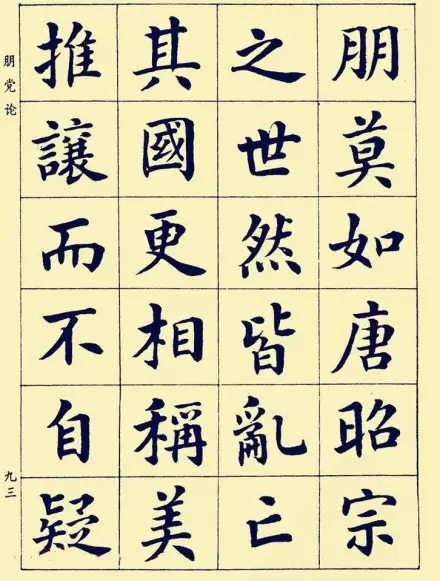 朋莫如唐昭宗
之世然皆亂亡
其國更相稱美
推讓而不自疑
朋党论
九三